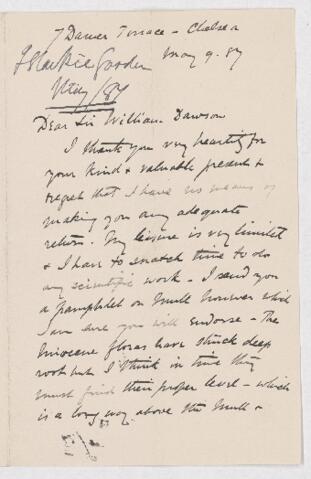 7 Damer Terrace - Chelsea
May 9. 87
J Starkie Gardn
May/87
Dear Sir William Dawson
I thank you very heartily for
your kind & valuable present &
regret that I have no means of
making you any adequate
return. My leisure is very limited
& I have to snatch time to do
any scientific work - I send you
a pamphlet on Mull however which
I am sure you will endorse - The
Miocene floras have struck deep
root but I think in time they
must find their proper level - which
is a long way above the Mull &